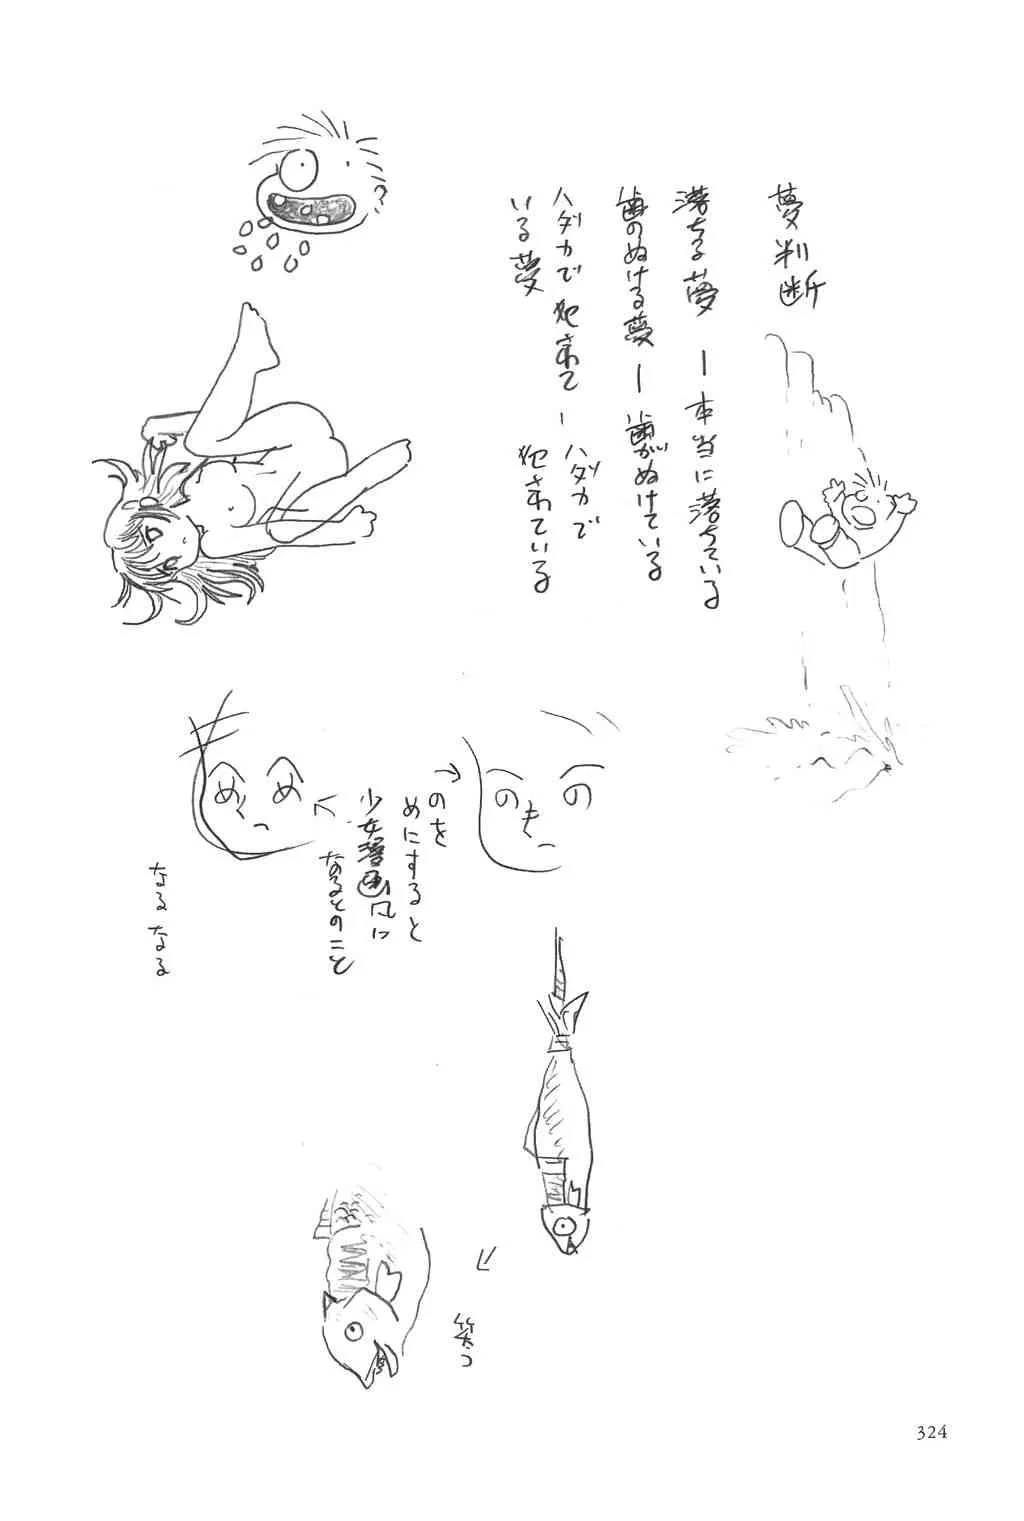 夢判断
落ちる夢 ー 本当に落ちている
歯のぬける夢 ー 歯がぬけている
ハダカで犯されて
いる夢
ー ハダカで
犯されている
のもの
のを
めにすると
少女漫画風に
なるとのこと
めくめ
なるなる
笑う
324